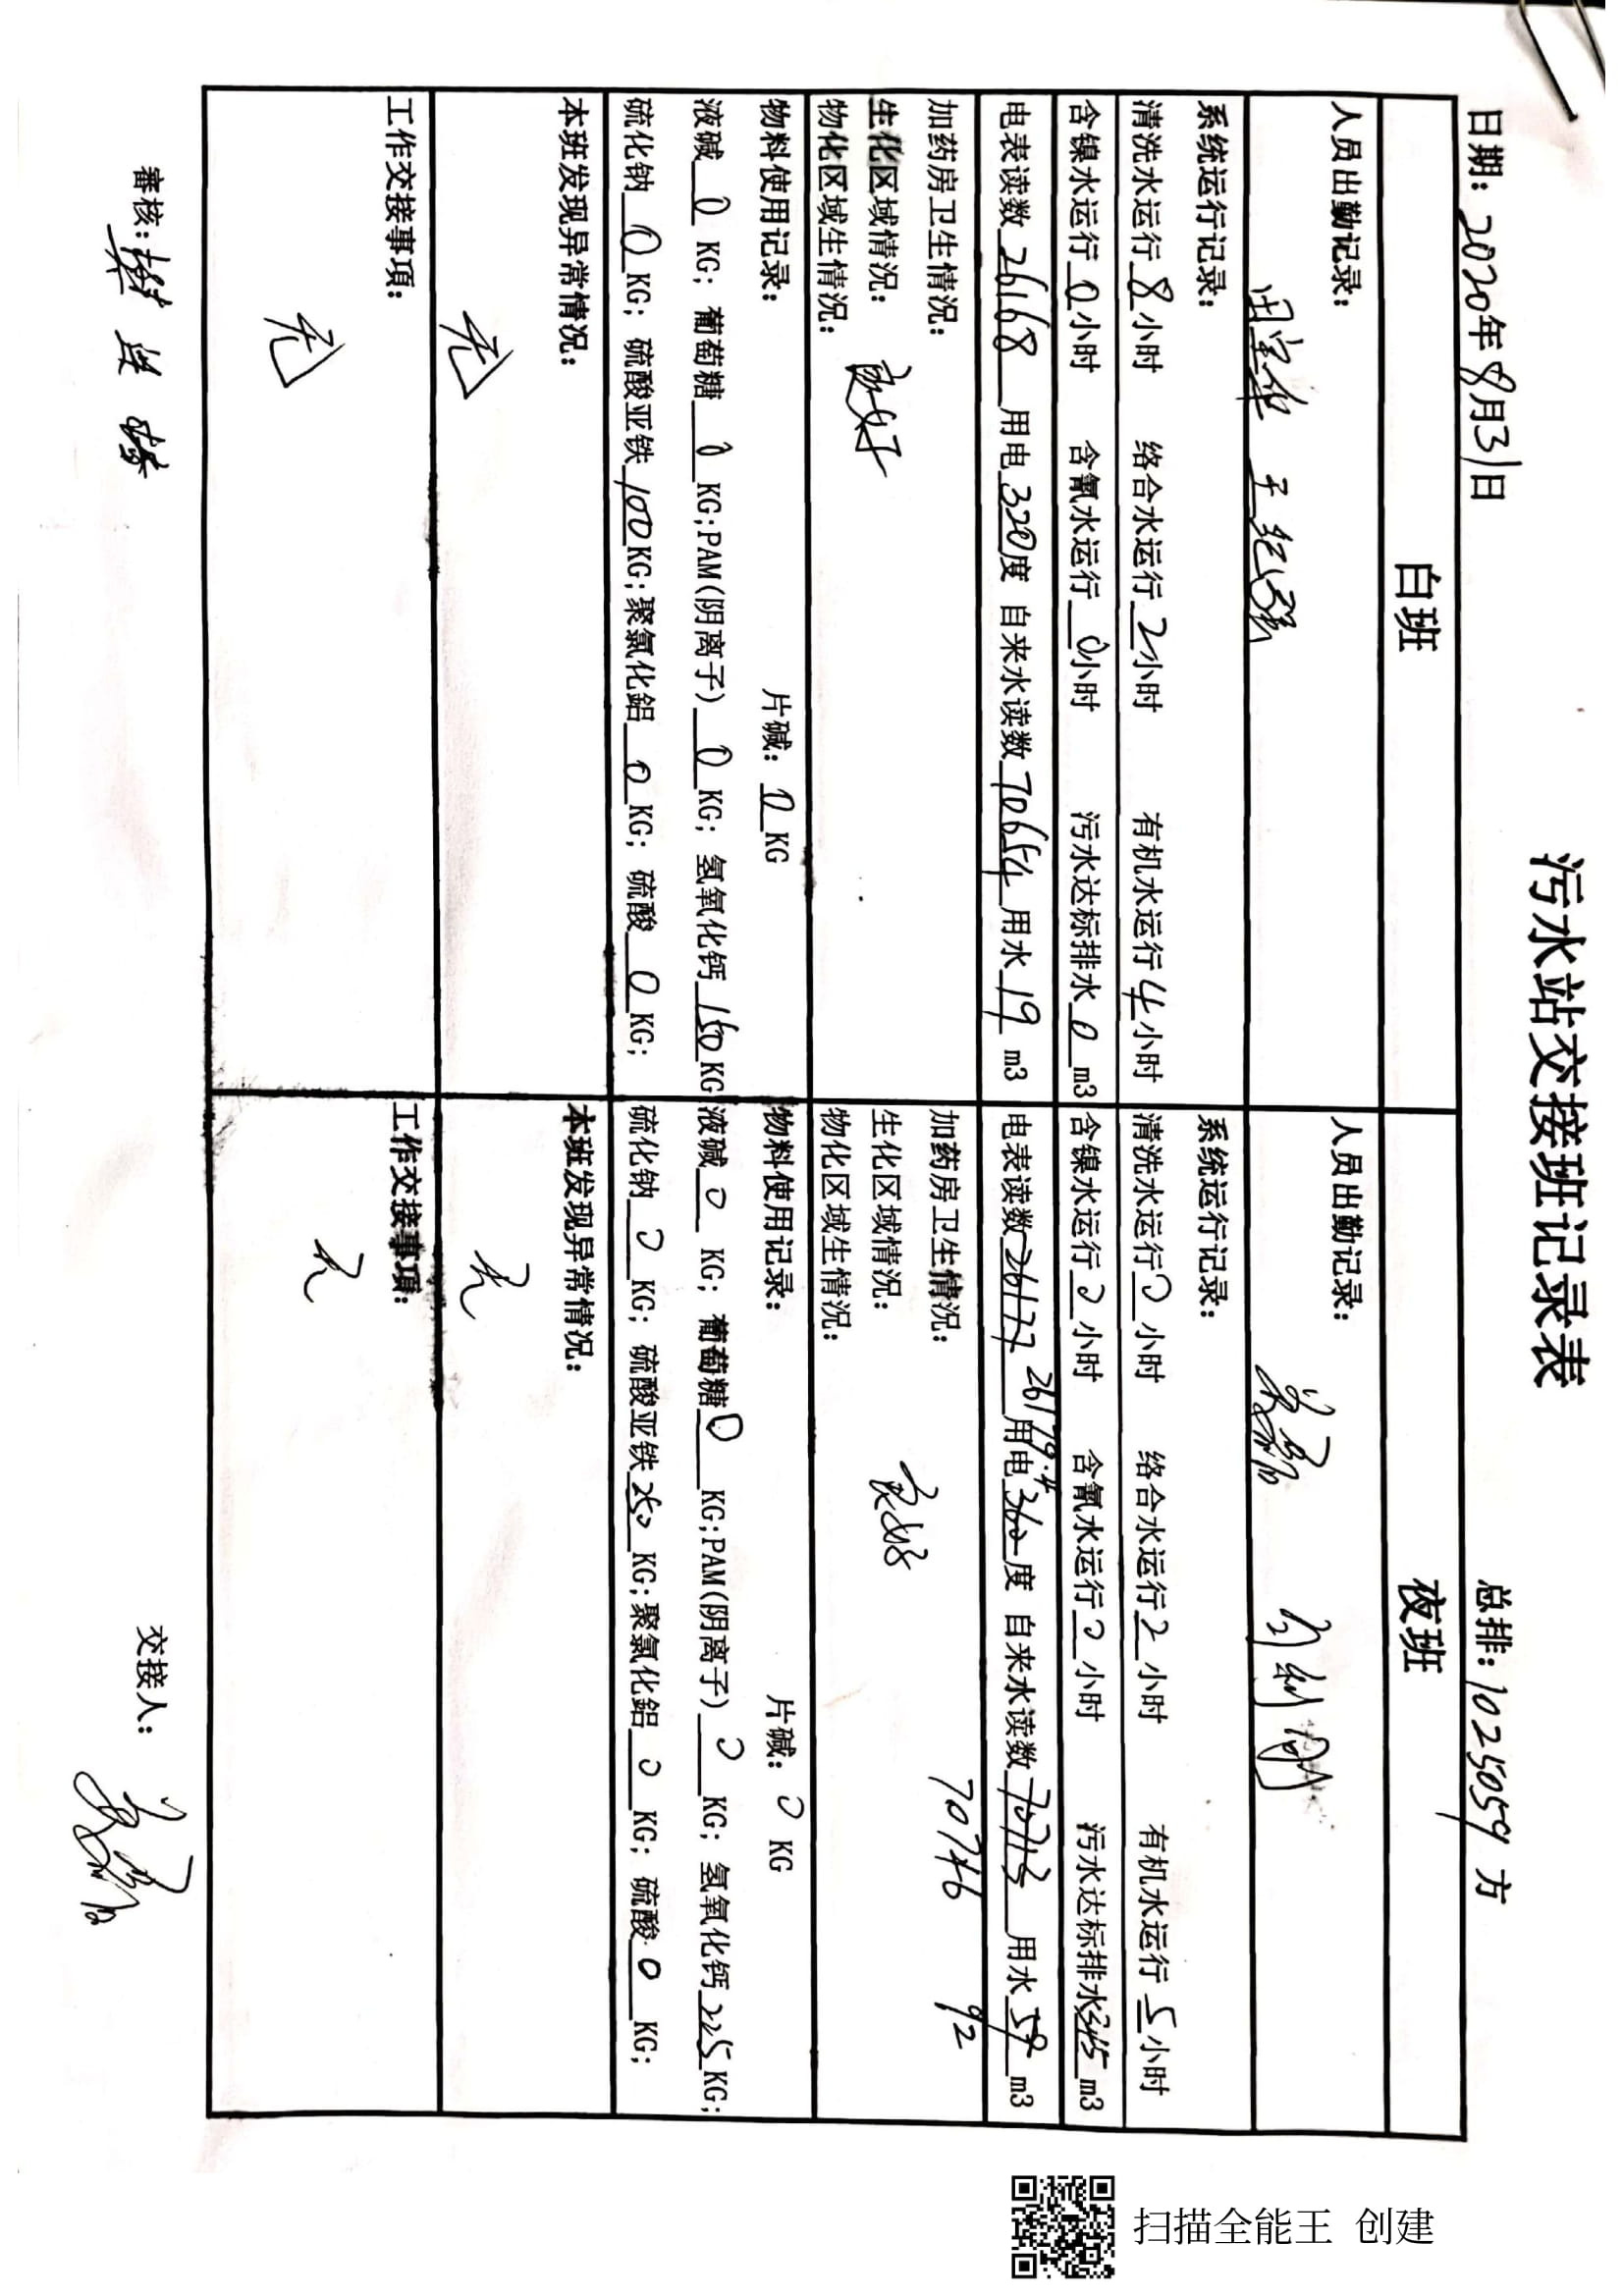 污水站交接班记录表
日期：2020年8月31日 总排：1025059方
白班 夜班
人员出勤记录： 人员出勤记录：
系统运行记录： 系统运行记录：
清洗水运行8小时 络合水运行2小时 有机水运行4小时 清洗水运行0小时 络合水运行2小时 有机水运行5小时
含镍水运行0小时 含氰水运行0小时 污水达标排水0m3 含镍水运行0小时 含氰水运行0小时 污水达标排水345m3
电表读数26168 用电320度 自来水读数70654用水19 m3 电表读数26177 26179.4 用电360度 自来水读数70713 用水59m3
加药房卫生情况： 加药房卫生情况： 70746 92
生化区域情况： 良好 生化区域情况： 良好
物化区域生情况： 物化区域生情况：
物料使用记录： 片碱：0KG 物料使用记录： 片碱：0KG
液碱0KG；葡萄糖0KG;PAM(阴离子)0KG；氢氧化钙150KG 液碱0KG；葡萄糖0KG;PAM(阴离子)0KG；氢氧化钙225KG；
硫化钠0KG；硫酸亚铁100KG;聚氯化鋁0KG；硫酸0KG； 硫化钠0KG；硫酸亚铁250KG;聚氯化鋁0KG；硫酸0KG；
本班发现异常情况： 本班发现异常情况：
无 无
工作交接事项： 工作交接事项：
无 无
审核： 交接人：
扫描全能王 创建